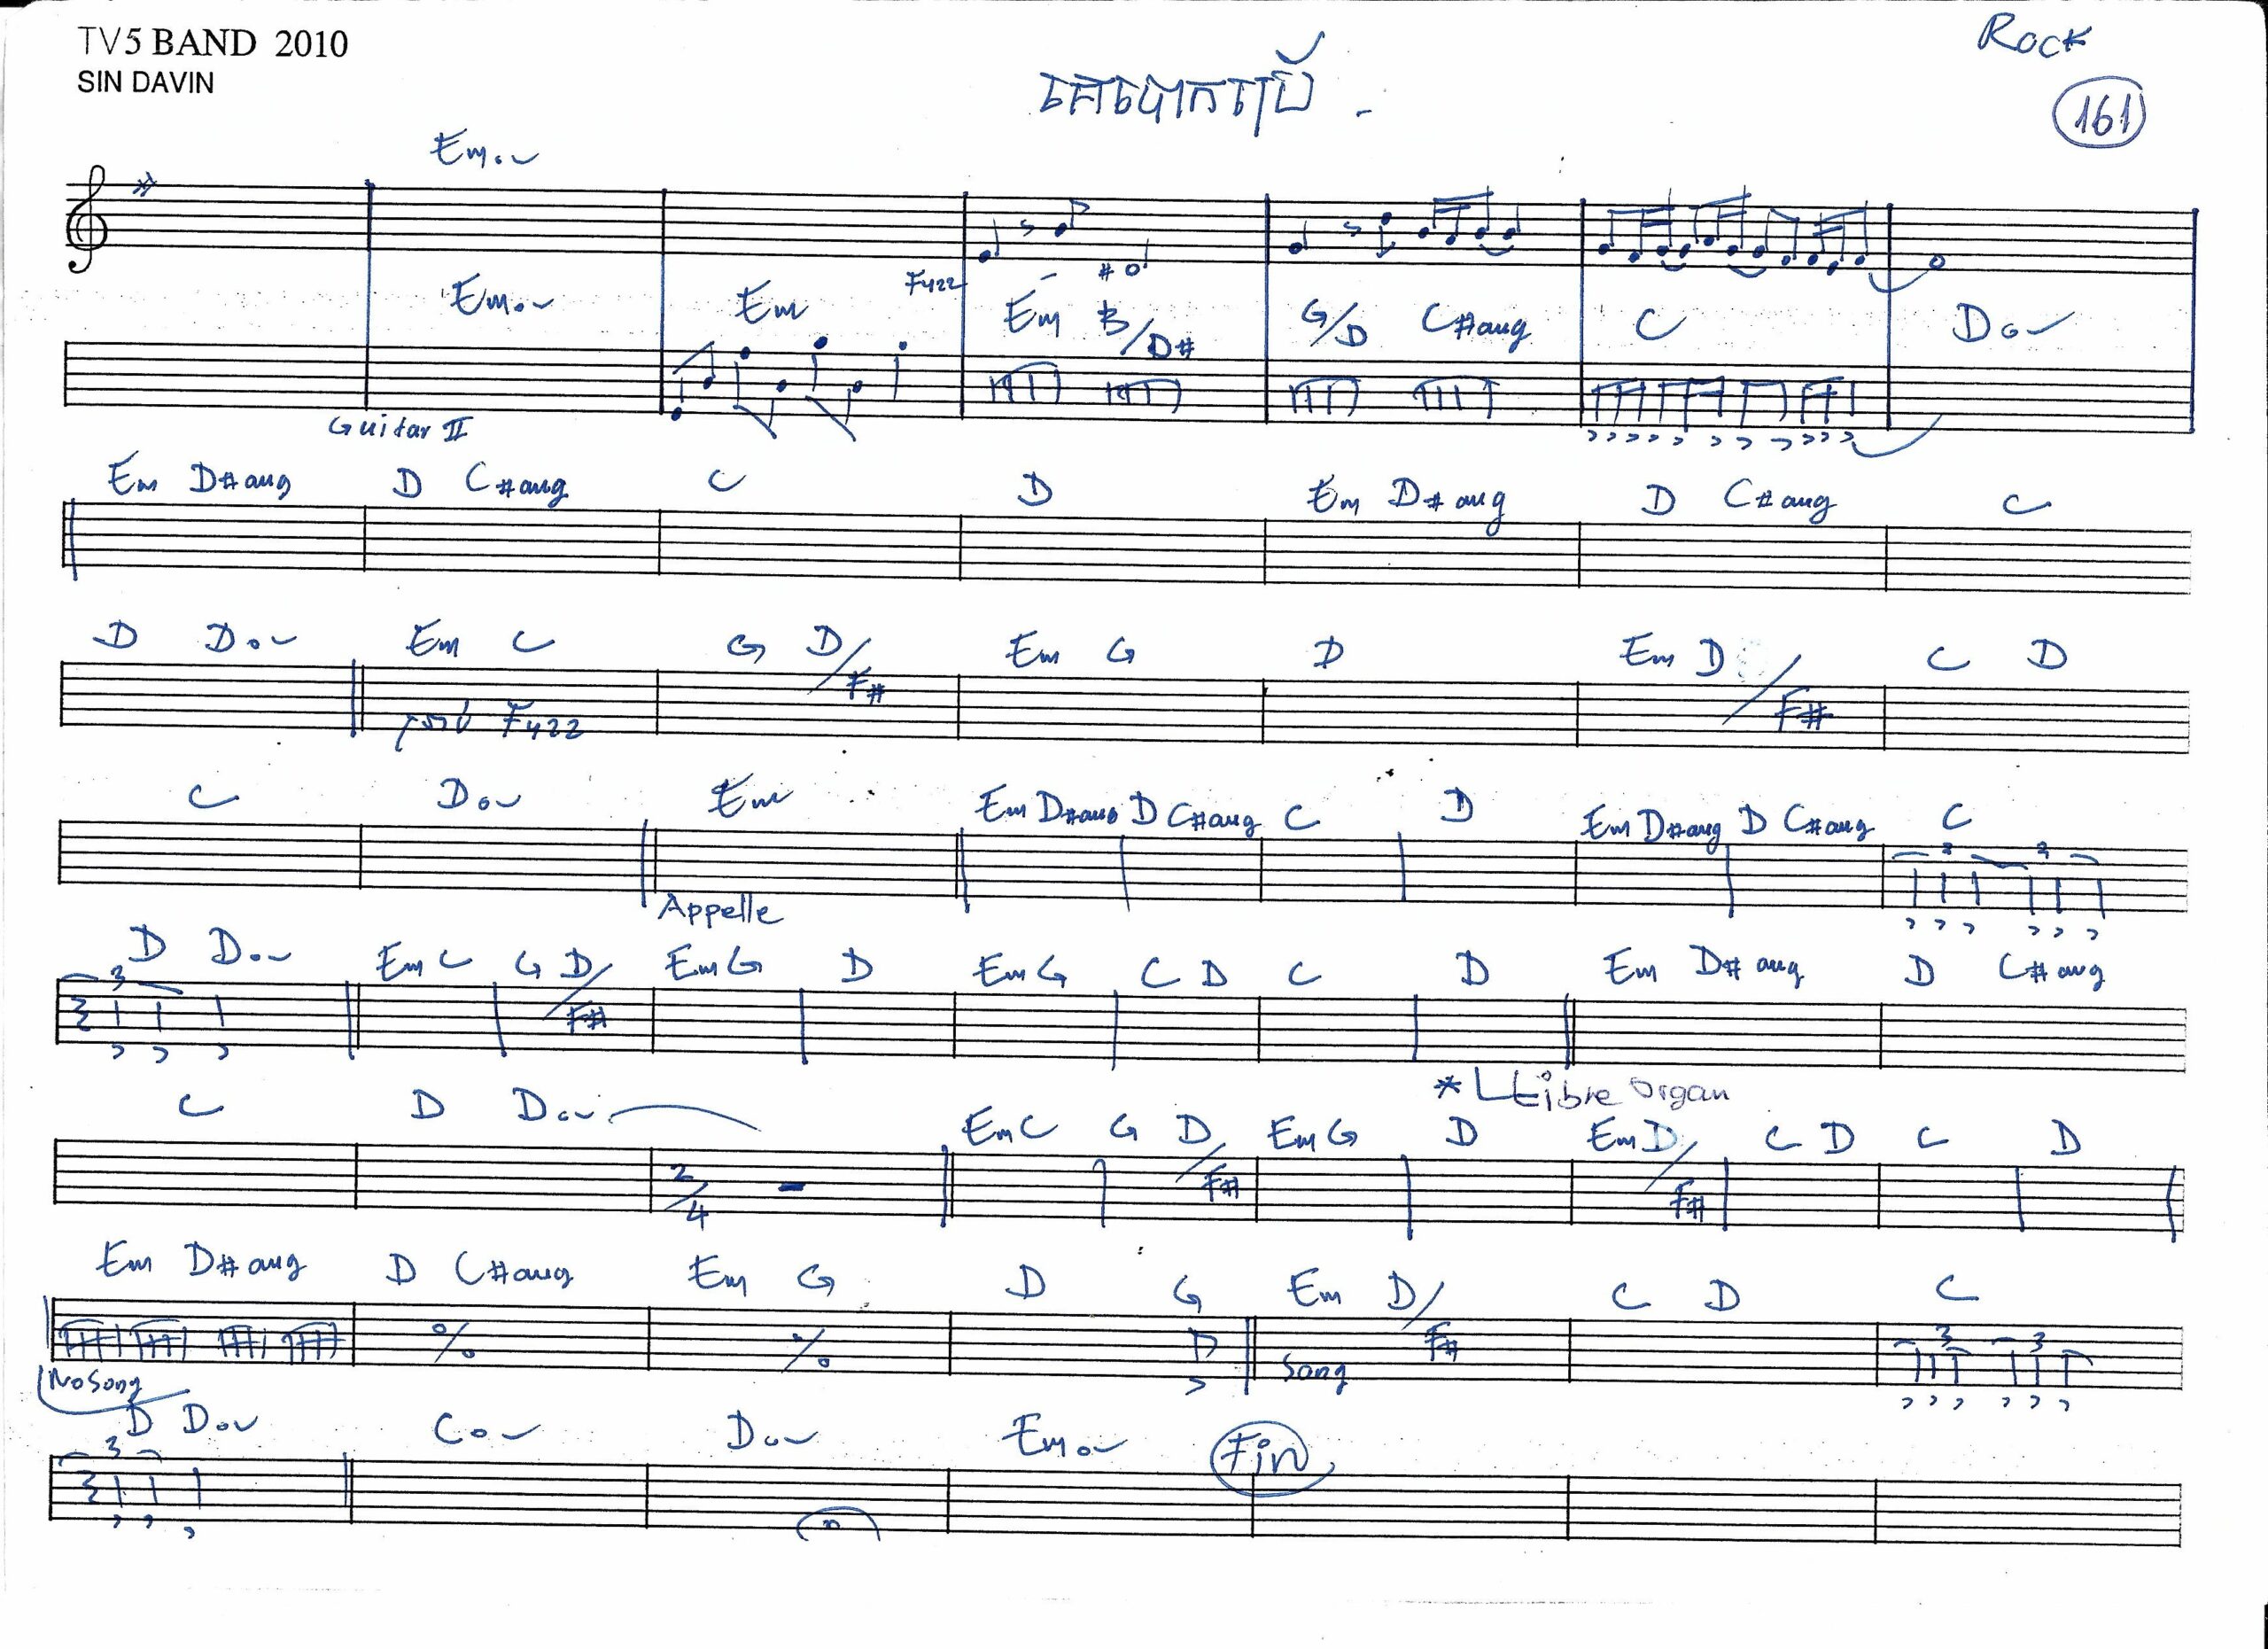 TV5 BAND 2010
SIN DAVIN
Rock
គេបោកប្រើ
161
Em
Fuzz
Em Em Em B/D# G/D C#aug C D
Guitar II
Em D#aug D C#aug C D Em D#aug D C#aug C
D D Em C G D/F# Em G D Em D/F# C D
Fuzz
C D Em Em D#aug D C#aug C D Em D#aug D C#aug C
3 3
Appelle
D D Em C G D/F# Em G D Em G C D C D Em D# aug D C# aug
3
* Libre organ
C D D Em C G D/F# Em G D Em D/F# C D C D
2/4
Em D#aug D C#aug Em G D G Em D/F# C D C
3 3
No Song
Song
D D C D Em Fin
3